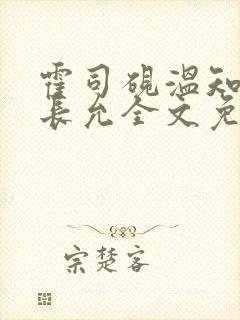 霍司砚温知
长允全文免
宗楚客